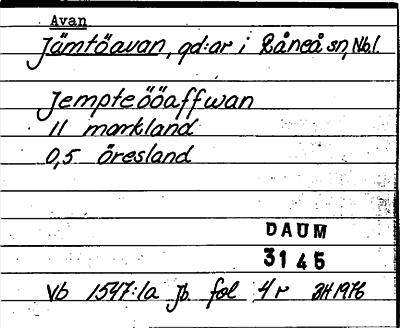 Avan
Jämtöavan, gd:ar i Råneå sn, Nb.l.
Jempteööaffwan
11 markland
0,5 öresland
DAUM
3145
Vb 1547:1a Jb. fol 4r BH 1976